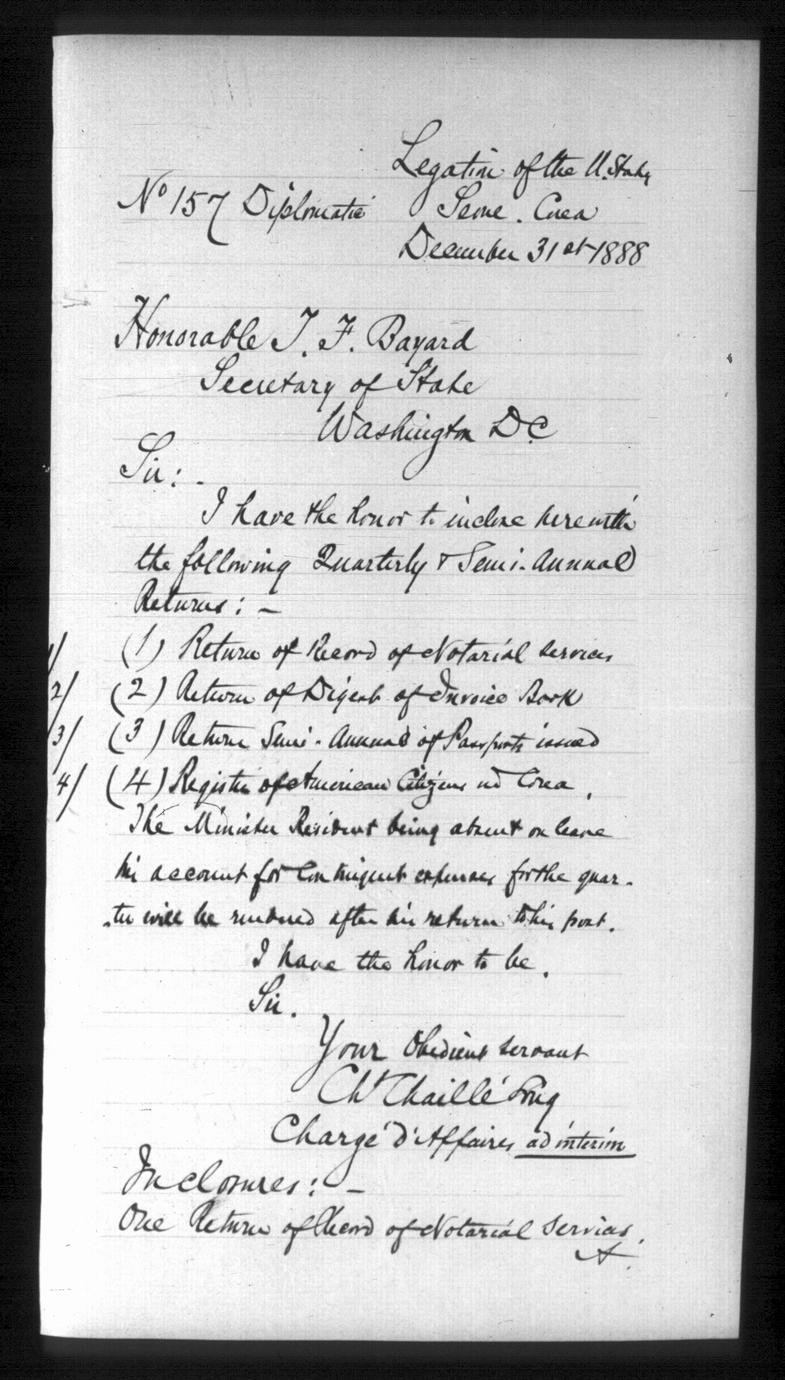 Legation of the U. States
No 157 Diplomatic Seoul. Corea
December 31st 1888
Honorable T. F. Bayard
Secretary of State
Washington D.C
Sir: -
I have the honor to inclose herewith
the following Quarterly & Semi-Annual
Returns: -
1/ (1) Return of Record of Notarial services
2/ (2) Return of Digest of Invoice Book
3/ (3) Return Semi-Annual of Passports issued
4/ (4) Register of American Citizens in Corea.
The Minister Resident being absent on leave
his account for Contingent expenses for the quar-
-ter will be rendered after his return to his post.
I have the honor to be.
Sir.
Your Obedient servant
Ch. Chaillé Long
Chargé d'Affaires ad interim
Inclosures: -
One Return of Record of Notarial Services.